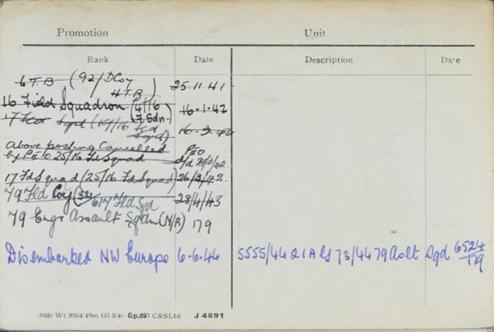 Promotion Unit
Rank Date Description Date
6 T.B (92/D Coy 4 T.B) 25.11.41
16 Field Squadron (4/16 17 Sdn.) 16.1.42
17 Fld Sqd (19/16 Fld Sqd) 16.3.42
Above posting cancelled P&O
by P&O 25/16 Fd Squad d/d 26/3/42
17 Fd Squad (25/16 Fd Squad) 26/3/42.
79 Fld Coy (32 617 Fld Sqd 28/4/43
79 Engr Assault Sqdn (N/R) 179
Disembarked NW Europe 6.6.44 5555/44 21A Gp 73/44 79 Aslt Sqd 6524/179
Gp.697 C&SLtd J 4691